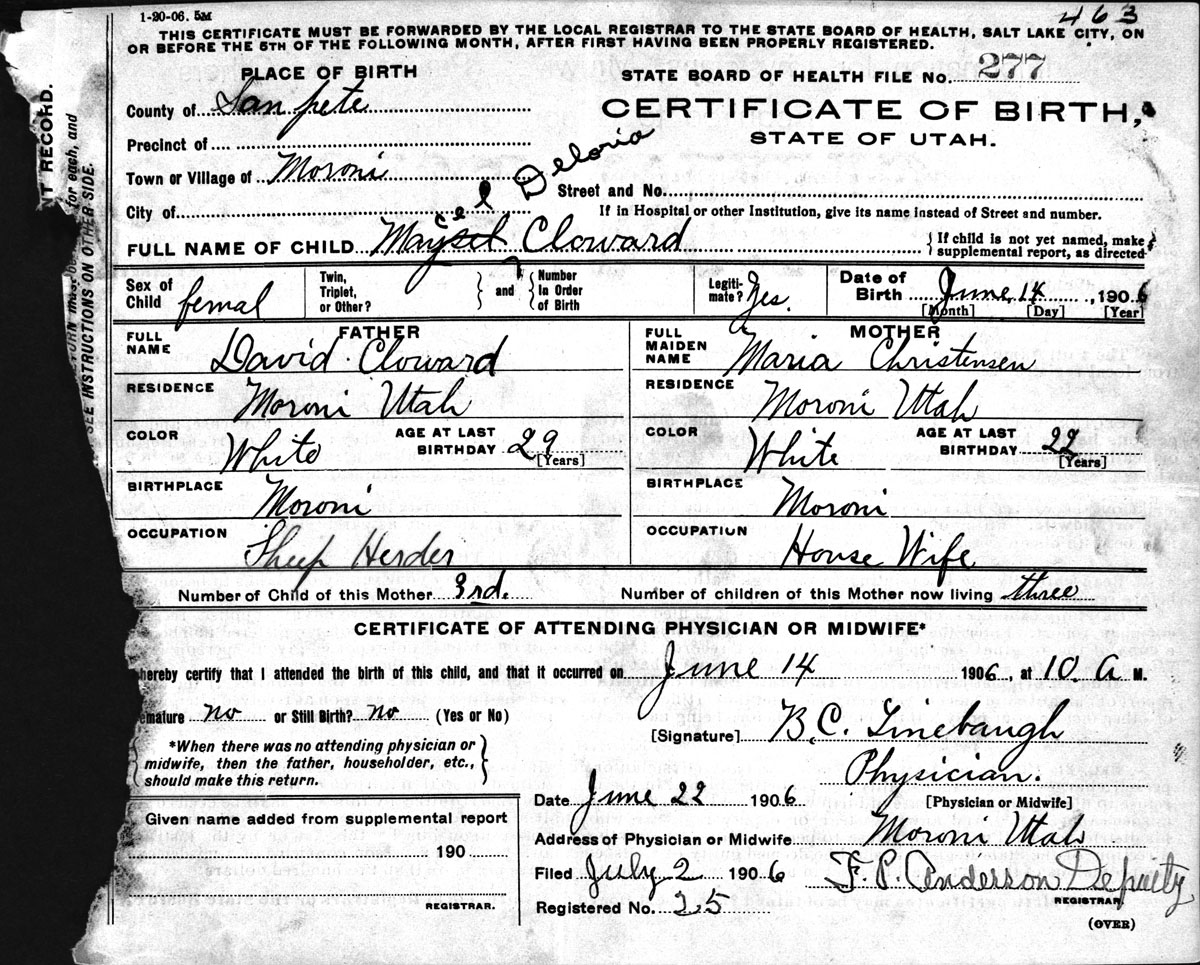 1-20-06. 5M
463
THIS CERTIFICATE MUST BE FORWARDED BY THE LOCAL REGISTRAR TO THE STATE BOARD OF HEALTH, SALT LAKE CITY, ON
OR BEFORE THE 5TH OF THE FOLLOWING MONTH, AFTER FIRST HAVING BEEN PROPERLY REGISTERED.
PLACE OF BIRTH
STATE BOARD OF HEALTH FILE No. 277
County of Sanpete
CERTIFICATE OF BIRTH,
STATE OF UTAH.
Precinct of
Town or Village of Moroni
Street and No.
City of
If in Hospital or other Institution, give its name instead of Street and number.
cel Deloria
FULL NAME OF CHILD Maysel Cloward
If child is not yet named, make
supplemental report, as directed
Sex of
Child femal
Twin,
Triplet,
or Other?
and
Number
in Order
of Birth
Legiti-
mate? Yes.
Date of
Birth June 14, 1906
[Month] [Day] [Year]
FATHER
FULL
NAME David Cloward
MOTHER
FULL
MAIDEN
NAME Maria Christensen
RESIDENCE Moroni Utah
RESIDENCE Moroni Utah
COLOR White
AGE AT LAST
BIRTHDAY 29
[Years]
COLOR White
AGE AT LAST
BIRTHDAY 22
[Years]
BIRTHPLACE Moroni
BIRTHPLACE Moroni
OCCUPATION Sheep Herder
OCCUPATION House Wife
Number of Child of this Mother 3rd.
Number of children of this Mother now living three
CERTIFICATE OF ATTENDING PHYSICIAN OR MIDWIFE*
hereby certify that I attended the birth of this child, and that it occurred on June 14 1906, at 10. A M.
emature no or Still Birth? no (Yes or No)
[Signature] B. C. Linebaugh
*When there was no attending physician or
midwife, then the father, householder, etc.,
should make this return.
Physician.
[Physician or Midwife]
Date June 22 1906
Given name added from supplemental report
190
REGISTRAR.
Address of Physician or Midwife Moroni Utah
Filed July 2 1906
F. P. Anderson Deputy
REGISTRAR
Registered No. 25
(OVER)
T RECORD.
for each, and
SEE INSTRUCTIONS ON OTHER SIDE.